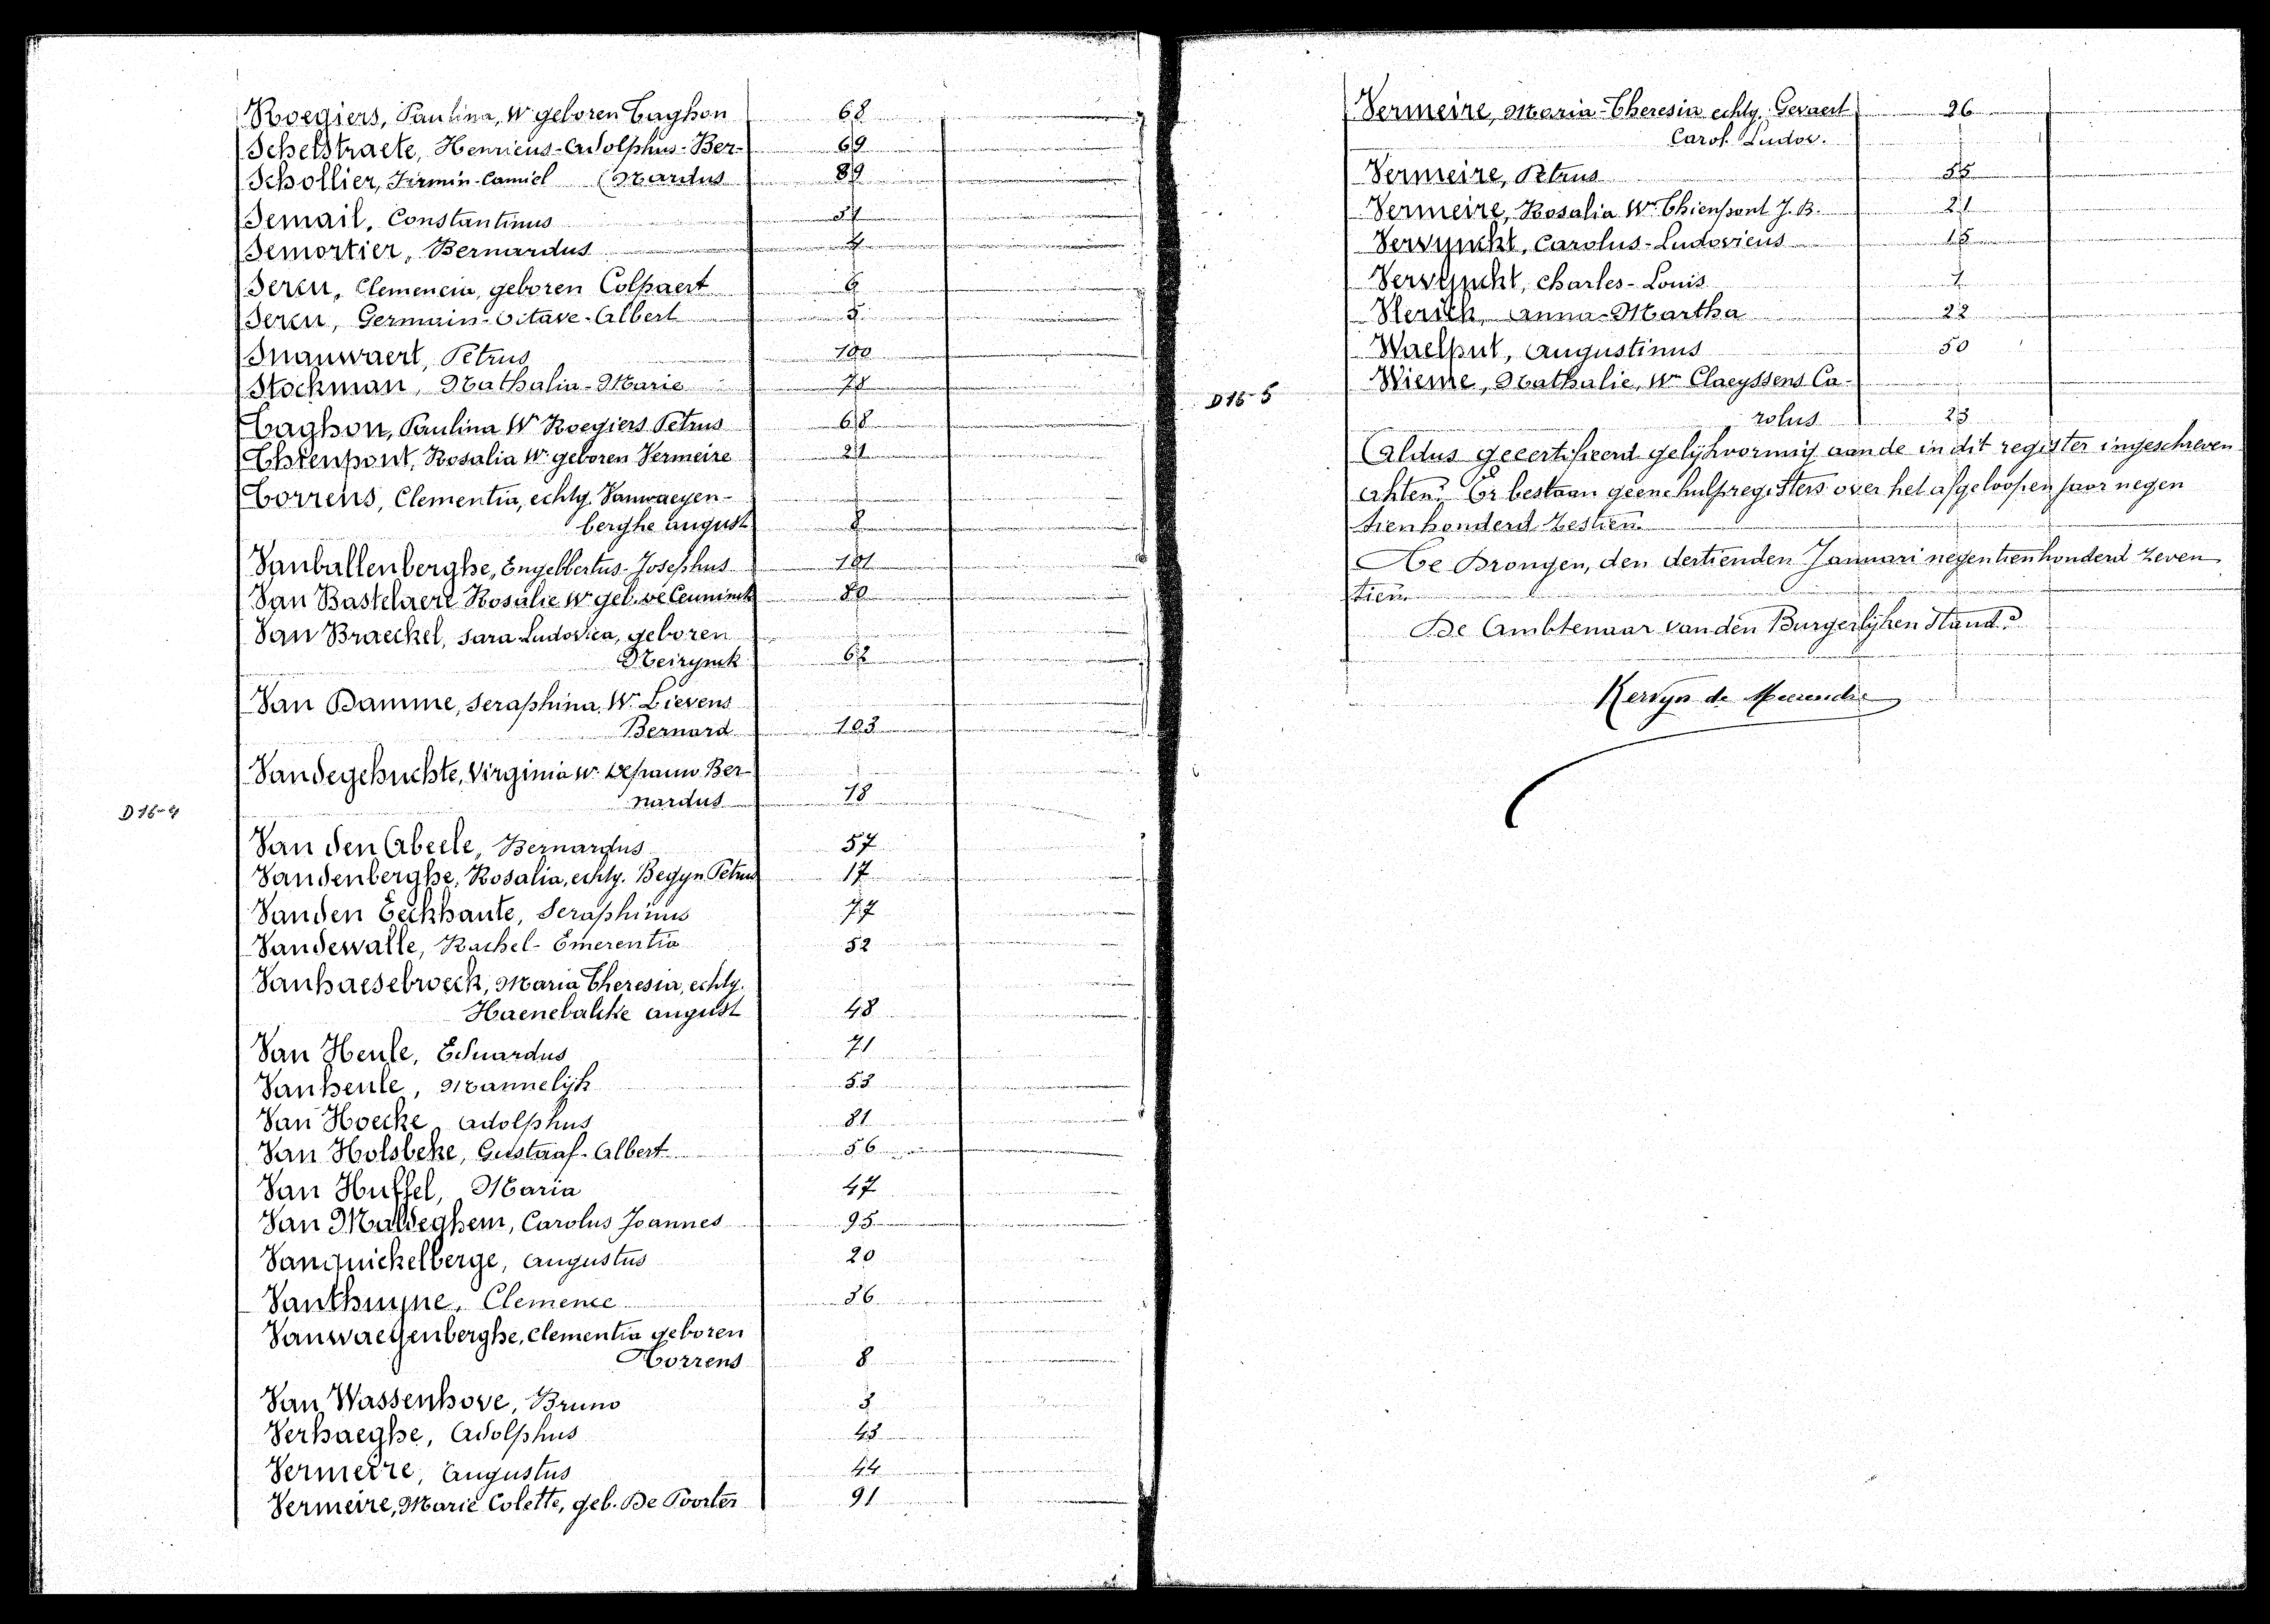 Roegiers, Paulina, We geboren Taghon 68
Schelstraete, Henricus-Adolphus-Ber- 69
Schollier, Firmin-Camiel (nardus 89
Semail, Constantinus 51
Semortier, Bernardus 4
Sercu, Clemencia, geboren Colpaert 6
Sercu, Germain-Octave-Albert 5
Snauwaert, Petrus 100
Stockman, Nathalia-Marie 78
Taghon, Paulina We Roegiers Petrus 68
Thienpont, Rosalia We geboren Vermeire 21
Torrens, Clementia, echtg. Vanwaeyen-
berghe August 8
Vanballenberghe, Engelbertus-Josephus 101
Van Bastelaere Rosalie We geb. De Ceuninck 80
Van Braeckel, Sara Ludovica, geboren
Neirynck 62
Van Damme, Seraphina, We Lievens
Bernard 103
Vandegehuchte, Virginia We Depauw Ber-
nardus 18
D16-4
Van den Abeele, Bernardus 57
Vandenberghe, Rosalia, echtg. Begyn Petrus 17
Vanden Eeckhaute, Seraphinus 77
Vandewalle, Rachel-Emerentia 52
Vanhaesebroeck, Maria Theresia, echtg.
Haenebalcke August 48
Van Heule, Eduardus 71
Vanheule, Mannelijk 53
Van Hoecke Adolphus 81
Van Holsbeke, Gustaaf-Albert 56
Van Huffel, Maria 47
Van Maldeghem, Carolus Joannes 95
Vanquickelberge, Augustus 20
Vanthuyne, Clemence 36
Vanwaeyenberghe, Clementia geboren
Torrens 8
Van Wassenhove, Bruno 3
Verhaeghe, Adolphus 43
Vermeire, Augustus 44
Vermeire, Marie Colette, geb. De Poorter 91
Vermeire, Maria-Theresia echtg. Gevaert 26
Carol. Ludov.
Vermeire, Petrus 55
Vermeire, Rosalia We Thienpont J. B. 21
Vervynckt, Carolus-Ludovicus 15
Vervynckt, Charles-Louis 1
Vlerick, Anna-Martha 22
Waelput, Augustinus 50
Wieme, Nathalie, We Claeyssens Ca-
D16-5
rolus 23
Aldus gecertifieerd gelijkvormig aan de in dit register ingeschreven
akten. Er bestaan geene hulpregisters over het afgeloopen jaar negen
tienhonderd zestien.
Te Drongen, den dertienden Januari negentienhonderd zeven
tien.
De Ambtenaar van den Burgerlijken Stand.
Kervyn de Meerendré